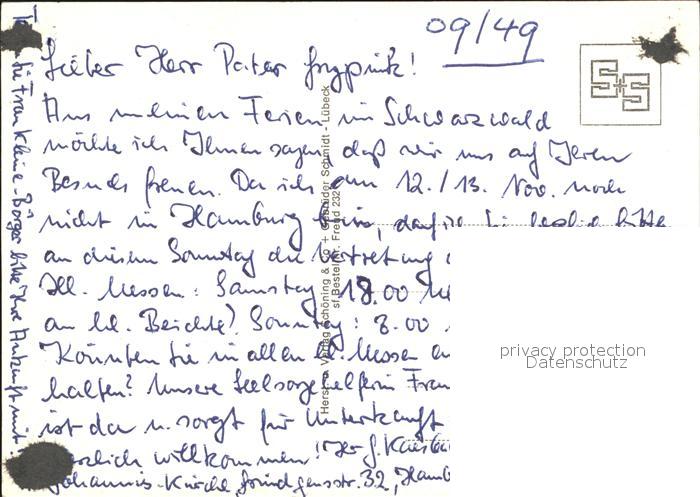 09/49
Lieber Herr Pater
Aus meinen Ferien im Schwarzwald
möchte ich Ihnen sagen, daß wir uns auf Ihren
Besuch freuen. Da ich am 12./13. Nov. noch
nicht in Hamburg bin, darf ich Sie herzlich bitte
an diesem Sonntag die Vertretung
Hll. Messen: Samstag 18.00
an hl. Beichte? Sonntag: 8.00
Könnten Sie in allen hl. Messen
halten? Unsere Seelsorgehelferin Frau
ist da u. sorgt für Unterkunft
herzlich willkommen! Ihr
Johannis-Kirche 32, Hamb
Sie Frau Kleine-Borger bitte Ihre Ankunft mit.
Verlag Schöning & Co + Gebrüder Schmidt - Lübeck
Bestellnr.
SS
privacy protection
Datenschutz